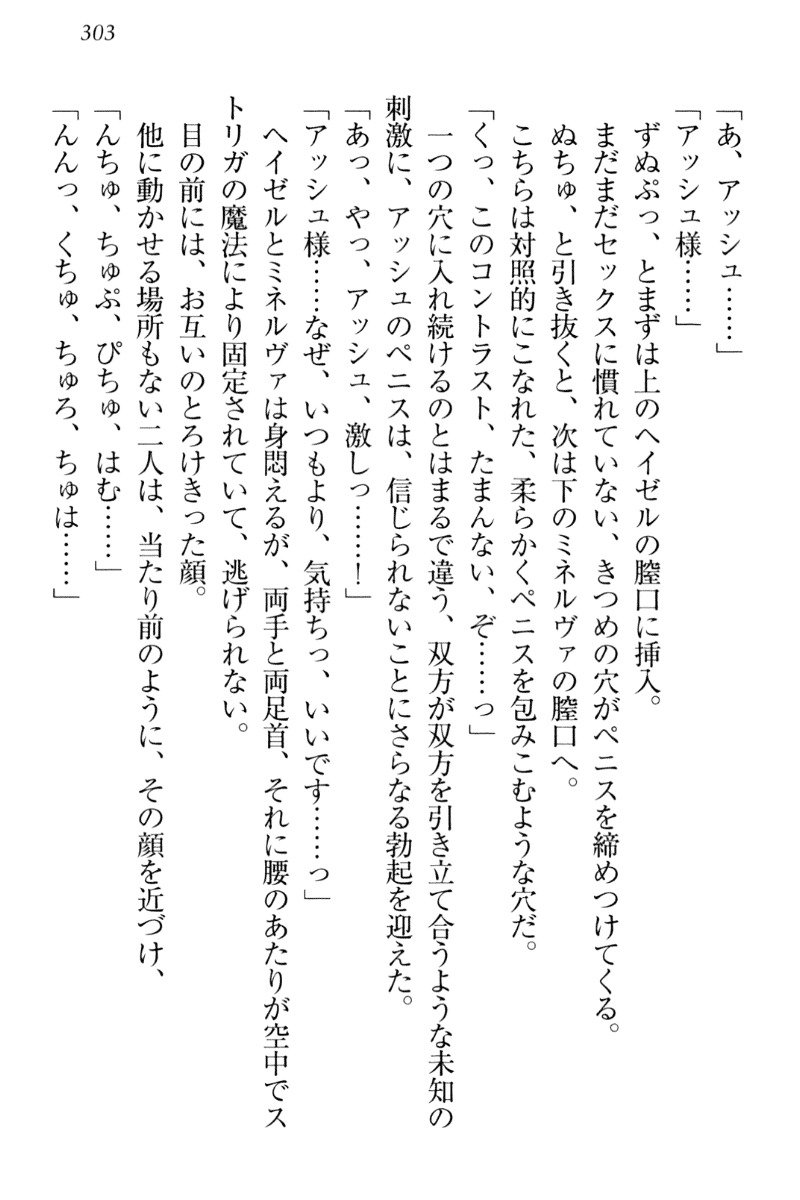 303
「あ、アッシュ……」
「アッシュ様……」
ずぬぷっ、とまずは上のヘイゼルの膣口に挿入。
まだまだセックスに慣れていない、きつめの穴がペニスを締めつけてくる。
ぬちゅ、と引き抜くと、次は下のミネルヴァの膣口へ。
こちらは対照的にこなれた、柔らかくペニスを包みこむような穴だ。
「くっ、このコントラスト、たまんない、ぞ……っ」
一つの穴に入れ続けるのとはまるで違う、双方が双方を引き立て合うような未知の
刺激に、アッシュのペニスは、信じられないことにさらなる勃起を迎えた。
「あっ、やっ、アッシュ、激しっ……！」
「アッシュ様……なぜ、いつもより、気持ちっ、いいです……っ」
ヘイゼルとミネルヴァは身悶えるが、両手と両足首、それに腰のあたりが空中でス
トリガの魔法により固定されていて、逃げられない。
目の前には、お互いのとろけきった顔。
他に動かせる場所もない二人は、当たり前のように、その顔を近づけ、
「んちゅ、ちゅぷ、ぴちゅ、はむ……」
「んんっ、くちゅ、ちゅろ、ちゅは……」